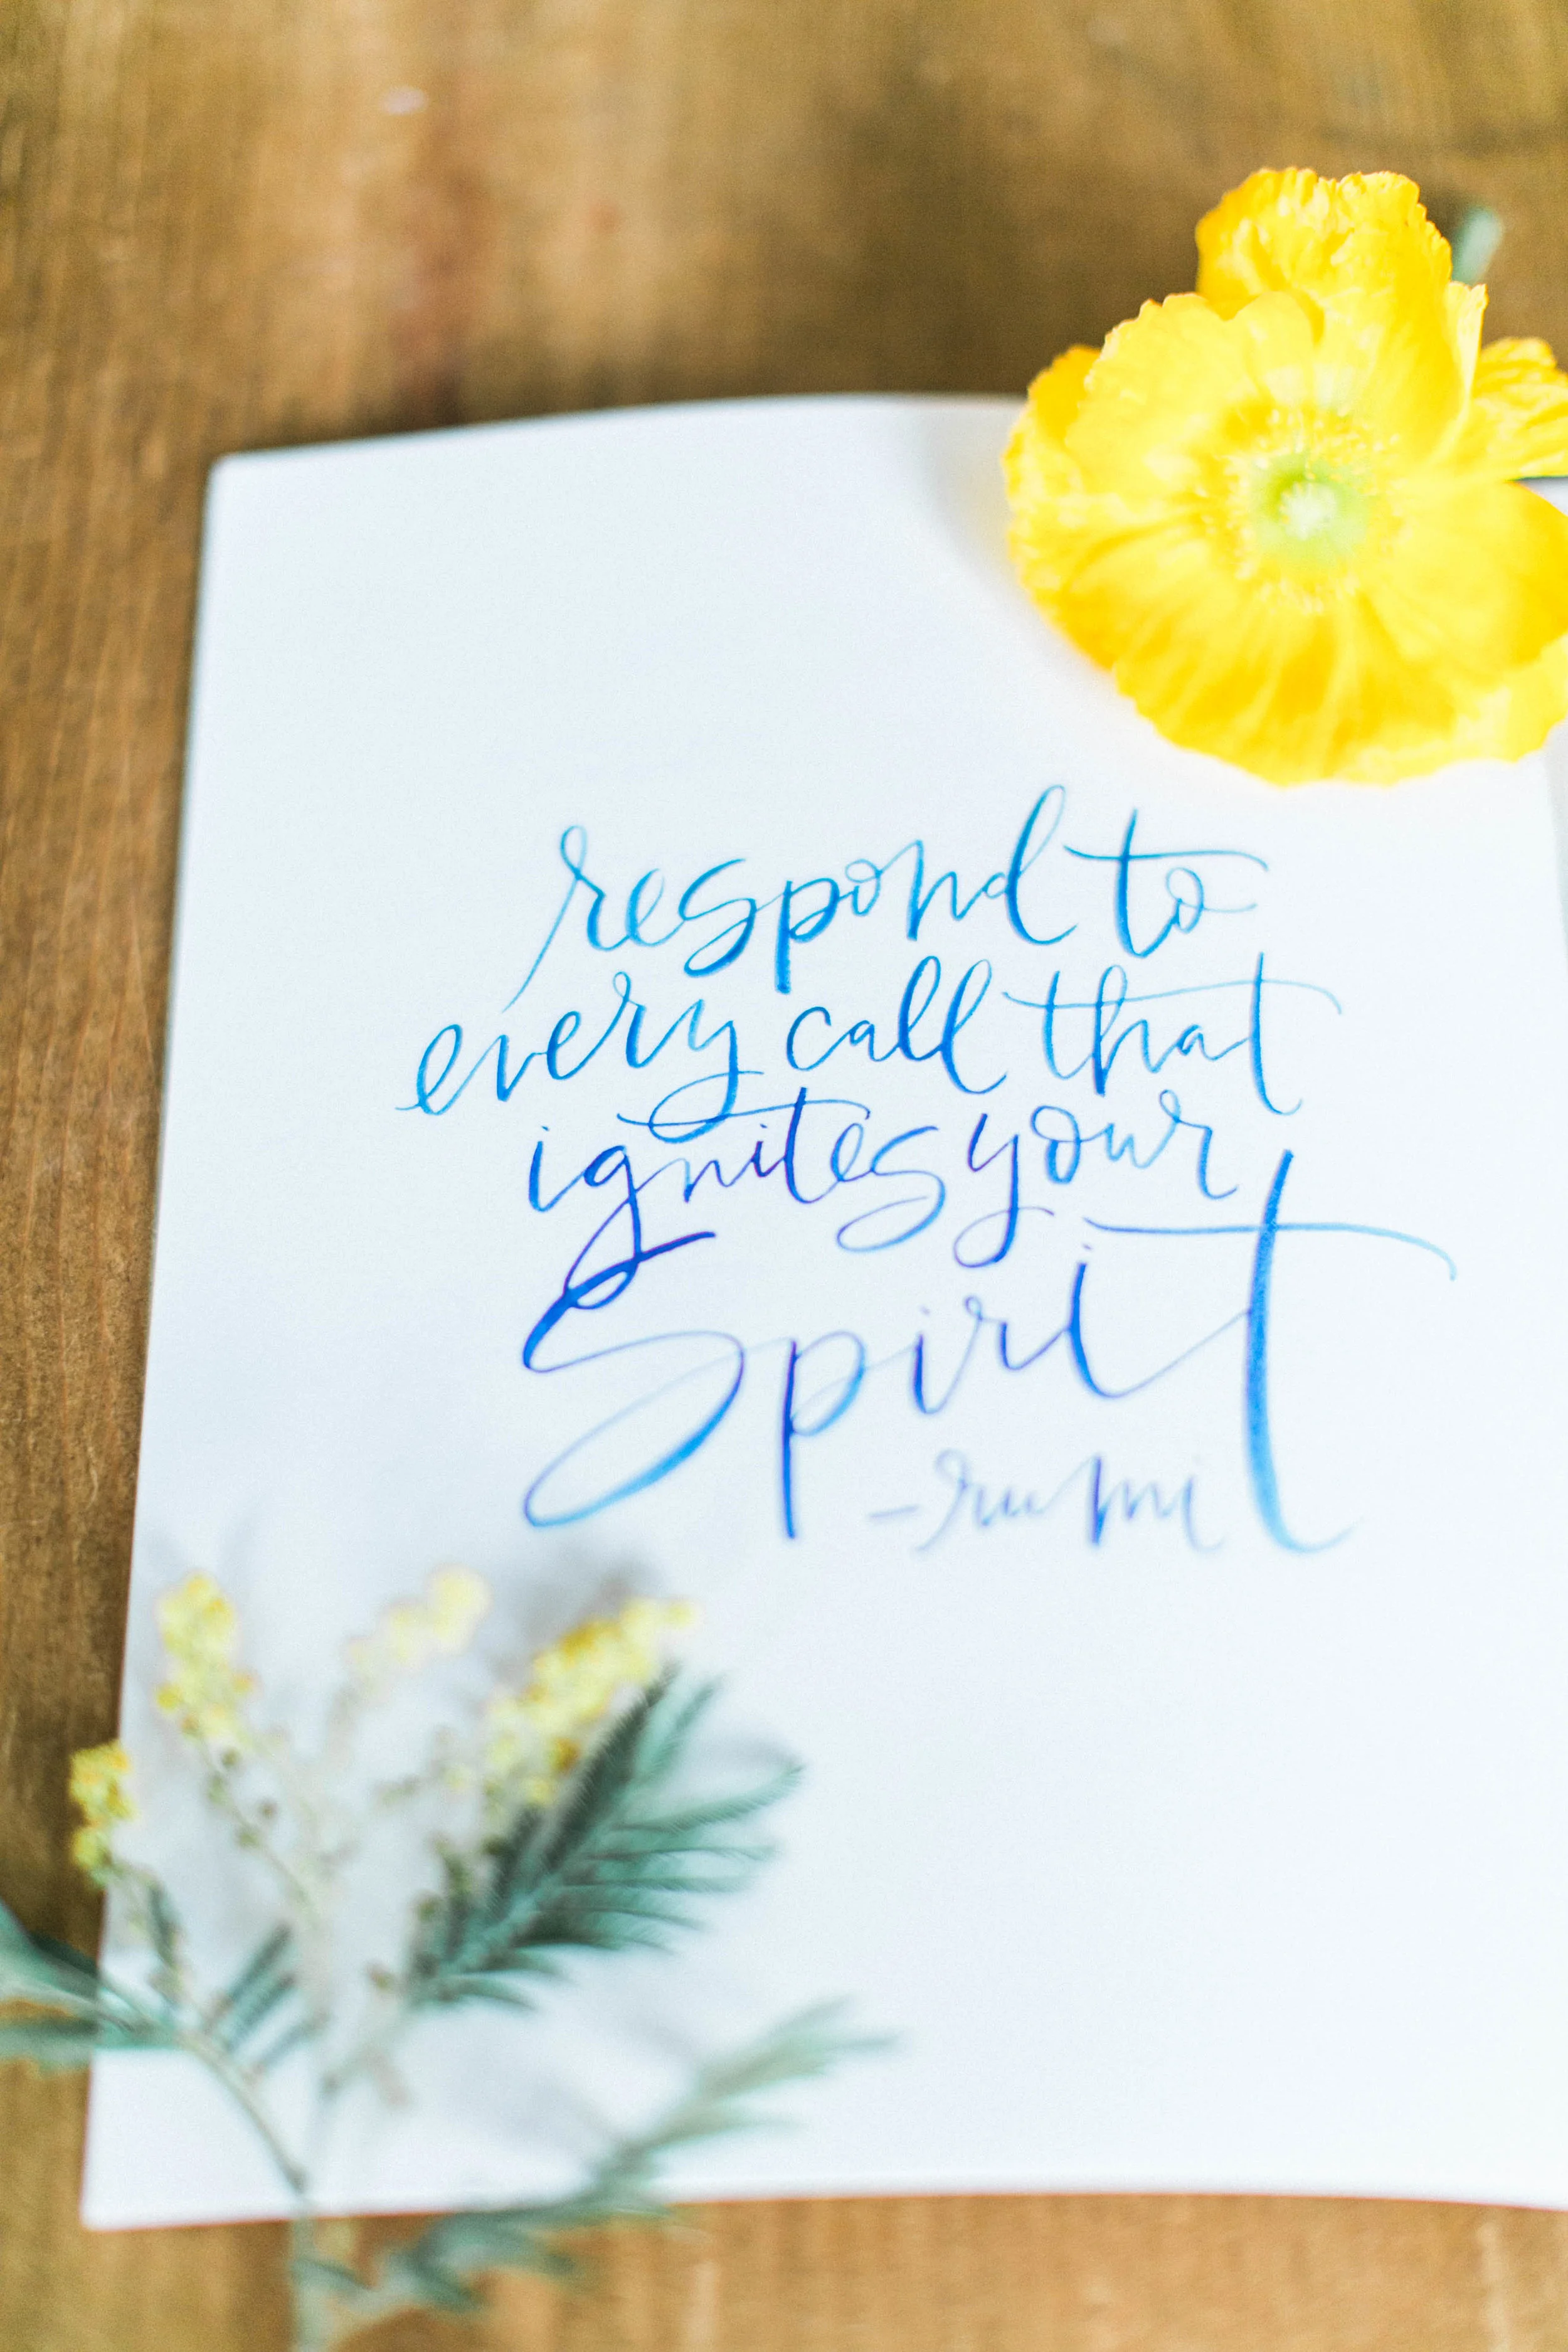 respond to
every call that
ignites your
Spirit
-rumi